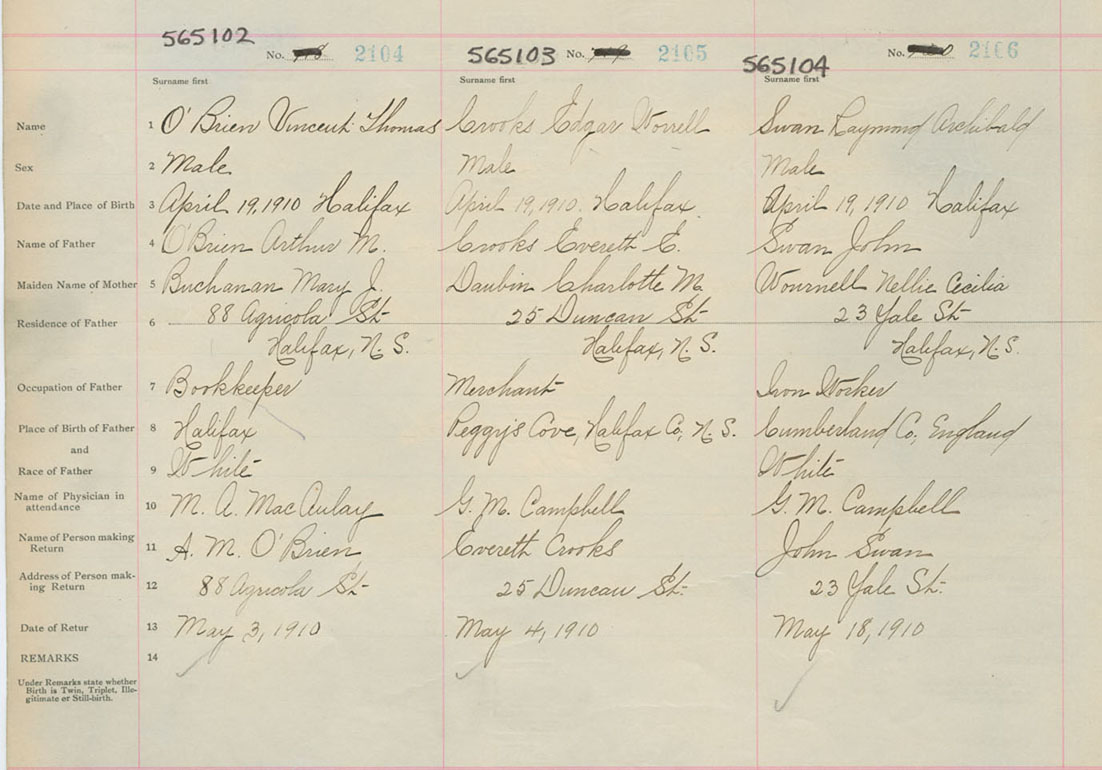 565102 No. 2104 565103 No. 2105 565104 No. 2106
Surname first Surname first Surname first
Name 1 O'Brien Vincent Thomas Crooks Edgar Worrell Swan Raymond Archibald
Sex 2 Male Male Male
Date and Place of Birth 3 April 19, 1910 Halifax April 19, 1910. Halifax April 19, 1910 Halifax
Name of Father 4 O'Brien Arthur M. Crooks Evereth E. Swan John
Maiden Name of Mother 5 Buchanan Mary J. Daubin Charlotte M. Wournell Nellie Cecilia
Residence of Father 6 88 Agricola St- 25 Duncan St- 23 Yale St-
Halifax, N.S. Halifax, N.S. Halifax, N.S.
Occupation of Father 7 Bookkeeper Merchant Iron Worker
Place of Birth of Father 8 Halifax Peggy's Cove, Halifax Co, N.S. Cumberland Co, England
and
Race of Father 9 White White
Name of Physician in
attendance 10 M. A. MacAulay G. M. Campbell G. M. Campbell
Name of Person making
Return 11 A. M. O'Brien Evereth Crooks John Swan
Address of Person mak-
ing Return 12 88 Agricola St- 25 Duncan St: 23 Yale St:
Date of Retur 13 May 3, 1910 May 4, 1910 May 18, 1910
REMARKS 14
Under Remarks state whether
Birth is Twin, Triplet, Ille-
gitimate or Still-birth.